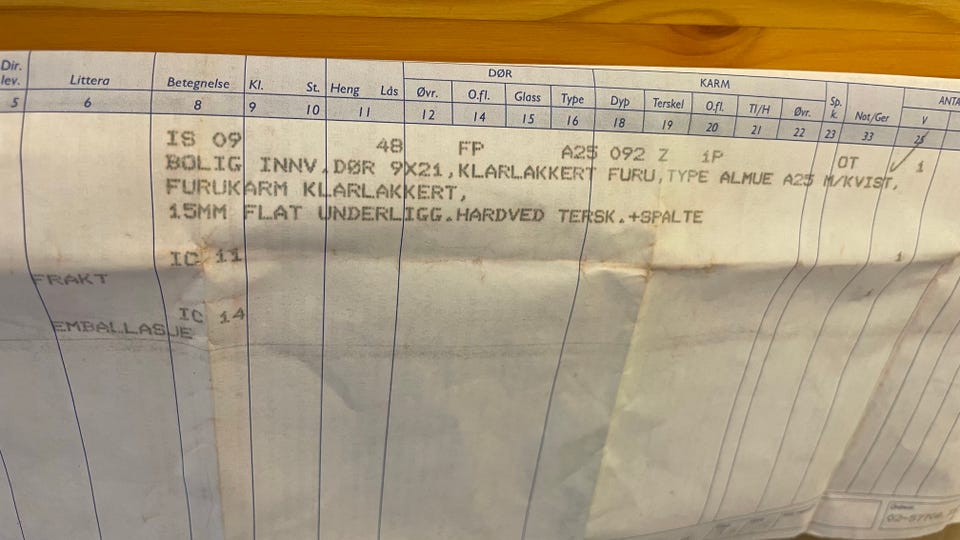 DØR KARM
Dir. lev. Littera Betegnelse Kl. St. Heng Lås Øvr. O.fl. Glass Type Dyp Terskel O.fl. Tl/H Øvr. Sp. k. Not/Ger ANTA V
5 6 8 9 10 11 12 14 15 16 18 19 20 21 22 23 33 25
IS 09 48 FP A25 092 Z 1P OT 1
BOLIG INNV.DØR 9X21,KLARLAKKERT FURU,TYPE ALMUE A25 M/KVIST,
FURUKARM KLARLAKKERT,
15MM FLAT UNDERLIGG.HARDVED TERSK.+SPALTE
IC 11 1
FRAKT
IC 14 1
EMBALLASJE